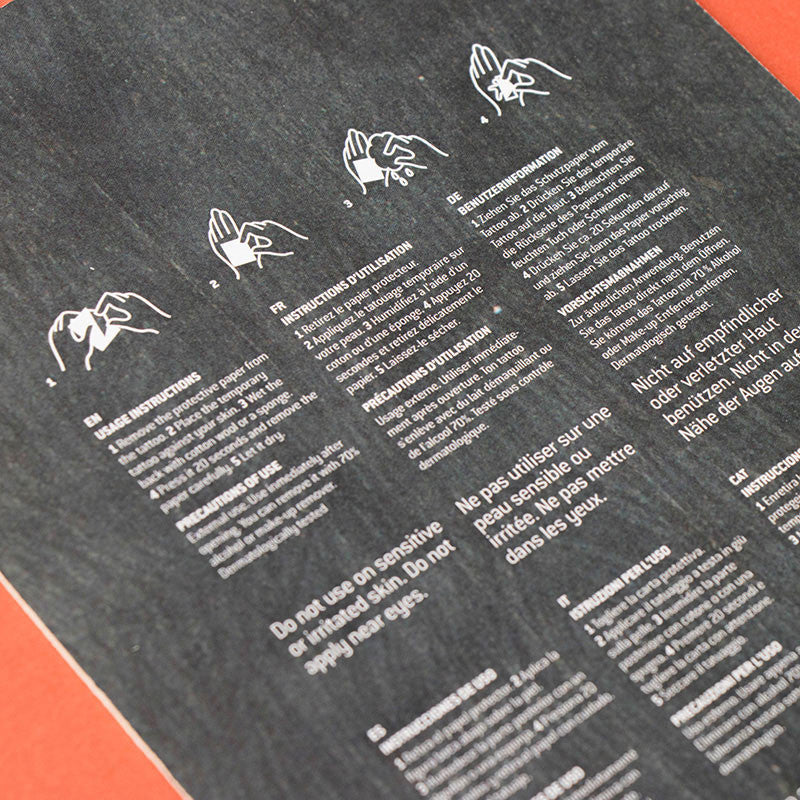 1
2
3
4
EN
USAGE INSTRUCTIONS
1 Remove the protective paper from
the tattoo. 2 Place the temporary
tattoo against your skin. 3 Wet the
back with cotton wool or a sponge.
4 Press it 20 seconds and remove the
paper carefully. 5 Let it dry.
PRECAUTIONS OF USE
External use. Use immediately after
opening. You can remove it with 70%
alcohol or make-up remover.
Dermatologically tested
Do not use on sensitive
or irritated skin. Do not
apply near eyes.
FR
INSTRUCTIONS D'UTILISATION
1 Retirez le papier protecteur.
2 Appliquez le tatouage temporaire sur
votre peau. 3 Humidifiez à l'aide d'un
coton ou d'une éponge. 4 Appuyez 20
secondes et retirez délicatement le
papier. 5 Laissez-le sécher.
PRÉCAUTIONS D'UTILISATION
Usage externe. Utiliser immédiate-
ment après ouverture. Ton tattoo
s'enlève avec du lait démaquillant ou
de l'alcool 70%. Testé sous contrôle
dermatologique.
Ne pas utiliser sur une
peau sensible ou
irritée. Ne pas mettre
dans les yeux.
DE
BENUTZERINFORMATION
1 Ziehen Sie das Schutzpapier vom
Tattoo ab. 2 Drücken Sie das temporäre
Tattoo auf die Haut. 3 Befeuchten Sie
die Rückseite des Papiers mit einem
feuchten Tuch oder Schwamm.
4 Drücken Sie ca. 20 Sekunden darauf
und ziehen Sie dann das Papier vorsichtig
ab. 5 Lassen Sie das Tattoo trocknen.
VORSICHTSMAßNAHMEN
Zur äußerlichen Anwendung. Benutzen
Sie das Tattoo direkt nach dem Öffnen.
Sie können das Tattoo mit 70 % Alkohol
oder Make-up Enferner entfernen.
Dermatologisch getestet.
Nicht auf empfindlicher
oder verletzter Haut
benützen. Nicht in de
Nähe der Augen auf
ES
INSTRUCCIONES DE USO
1 Retira el papel protector. 2 Aplica la
DE USO
IT
ISTRUZIONI PER L'USO
1 Togliere la carta protettiva.
2 Applicare il tatuaggio a testa in giù
sulla pelle. 3 Inumidire la parte
posteriore con cotone o con una
spugna. 4 Premere 20 secondi e
togliere la carta con attenzione.
5 Seccare il tatuaggio.
PRECAUZIONI PER L'USO
CAT
INSTRUCCION
1 Enretira
protegg